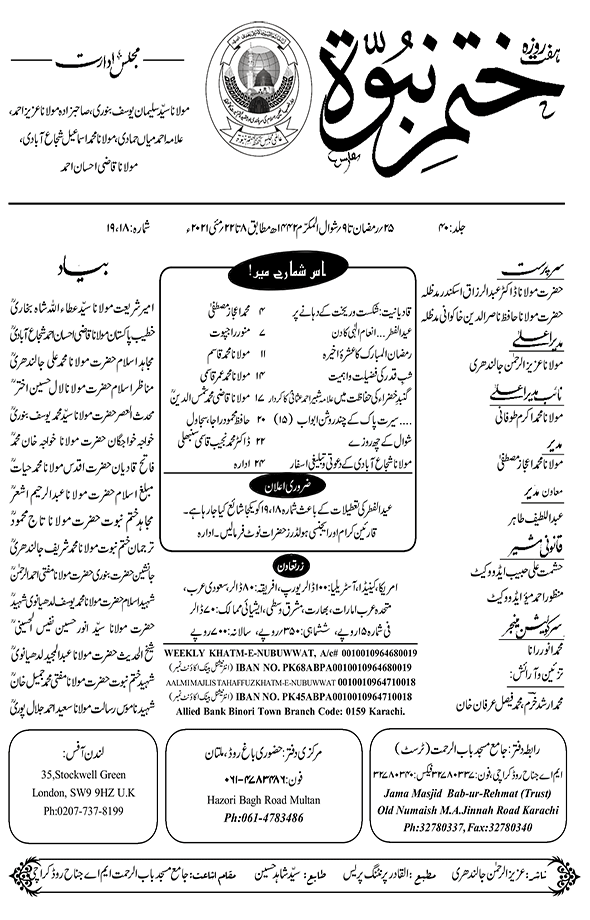 ہفت روزہ
ختم نبوّة
مجلس ادارت
مولانا سید سلیمان یوسف بنوری، صاحبزادہ مولانا عزیز احمد،
علامہ احمد میاں حمادی، مولانا محمد اسماعیل شجاع آبادی،
مولانا قاضی احسان احمد
جلد: ۴۰
۲۵؍ رمضان تا ۹؍ شوال المکرّم ۱۴۴۲ھ مطابق ۸ تا ۲۲؍ مئی ۲۰۲۱ء
شمارہ: ۱۸، ۱۹
سرپرست
حضرت مولانا ڈاکٹر عبدالرزاق اسکندر مدظلہ
حضرت مولانا حافظ ناصر الدین خاکوانی مدظلہ
مدیر اعلیٰ
مولانا عزیز الرحمٰن جالندھری
نائب مدیر اعلیٰ
مولانا محمد اکرم طوفانی
مدیر
مولانا محمد اعجاز مصطفیٰ
معاون مدیر
عبداللطیف طاہر
قانونی مشیر
حشمت علی حبیب ایڈووکیٹ
منظور احمد میؤ ایڈووکیٹ
سرکولیشن منیجر
محمد انور رانا
تزئین و آرائش:
محمد ارشد خرم، محمد فیصل عرفان خان
اس شمارے میں!
قادیانیت: شکست و ریخت کے دہانے پر ۴ محمد اعجاز مصطفیٰ
عید الفطر... انعام الٰہی کا دن ۷ منور راجپوت
رمضان المبارک کا عشرۂ اخیرہ ۱۱ مولانا محمد قاسم
شب قدر کی فضیلت و اہمیت ۱۴ مولانا محمد عمر قاسمی
گنبد خضراء کی حفاظت میں علامہ شبیر احمد عثمانی کا کردار ۱۷ مولانا قاضی محمد شمس الدینؒ
.... سیرت پاک کے چند روشن ابواب (۱۵) ۲۰ حافظ محمود راجا، سجاول
شوال کے چھ روزے ۲۲ ڈاکٹر محمد نجیب قاسمی سنبھلی
مولانا شجاع آبادی کے دعوتی و تبلیغی اسفار ۲۴ ادارہ
ضروری اعلان
عید الفطر کی تعطیلات کے باعث شمارہ ۱۸، ۱۹ کو یکجا شائع کیا جا رہا ہے۔
قارئین کرام اور ایجنسی ہولڈرز حضرات نوٹ فرمالیں۔ ادارہ
زر تعاون
امریکا، کینیڈا، آسٹریلیا: ۱۰۰ ڈالر یورپ، افریقہ: ۸۰ ڈالر، سعودی عرب،
متحدہ عرب امارات، بھارت، مشرق وسطیٰ، ایشیائی ممالک: ۷۰ ڈالر
فی شمارہ ۱۵ روپے، ششماہی: ۳۵۰ روپے، سالانہ: ۷۰۰ روپے
WEEKLY KHATM-E-NUBUWWAT, A/c# 0010010964680019
IBAN NO. PK68ABPA0010010964680019 (انٹرنیشنل بینک اکاؤنٹ نمبر)
AALMI MAJLIS TAHAFFUZ KHATM-E-NUBUWWAT 0010010964710018
IBAN NO. PK45ABPA0010010964710018 (انٹرنیشنل بینک اکاؤنٹ نمبر)
Allied Bank Binori Town Branch Code: 0159 Karachi.
بیاد
امیر شریعت مولانا سید عطاء اللہ شاہ بخاریؒ
خطیب پاکستان مولانا قاضی احسان احمد شجاع آبادیؒ
مجاہد اسلام حضرت مولانا محمد علی جالندھریؒ
مناظر اسلام حضرت مولانا لال حسین اخترؒ
محدث العصر حضرت مولانا سید محمد یوسف بنوریؒ
خواجہ خواجگان حضرت مولانا خواجہ خان محمدؒ
فاتح قادیان حضرت اقدس مولانا محمد حیاتؒ
مبلغ اسلام حضرت مولانا عبدالرحیم اشعرؒ
مجاہد ختم نبوت حضرت مولانا تاج محمودؒ
ترجمان ختم نبوت حضرت مولانا محمد شریف جالندھریؒ
جانشین حضرت بنوری حضرت مولانا مفتی احمد الرحمٰنؒ
شہید اسلام حضرت مولانا محمد یوسف لدھیانوی شہیدؒ
حضرت مولانا سید انور حسین نفیس الحسینیؒ
شیخ الحدیث حضرت مولانا عبدالمجید لدھیانویؒ
شہید ختم نبوت حضرت مولانا مفتی محمد جمیل خانؒ
شہید ناموس رسالت مولانا سعید احمد جلال پوریؒ
رابطہ دفتر: جامع مسجد باب الرحمت (ٹرسٹ)
ایم اے جناح روڈ کراچی، فون: ۳۲۷۸۰۳۳۷ فیکس: ۳۲۷۸۰۳۴۰
Jama Masjid Bab-ur-Rehmat (Trust)
Old Numaish M.A.Jinnah Road Karachi
Ph:32780337, Fax:32780340
مرکزی دفتر: حضوری باغ روڈ، ملتان
فون: ۰۶۱-۴۷۸۳۴۸۶
Hazori Bagh Road Multan
Ph:061-4783486
لندن آفس:
35,Stockwell Green
London, SW9 9HZ U.K
Ph:0207-737-8199
ناشر: عزیز الرحمٰن جالندھری مطبع: القادر پرنٹنگ پریس طابع: سید شاہد حسین مقام اشاعت: جامع مسجد باب الرحمت ایم اے جناح روڈ کراچی